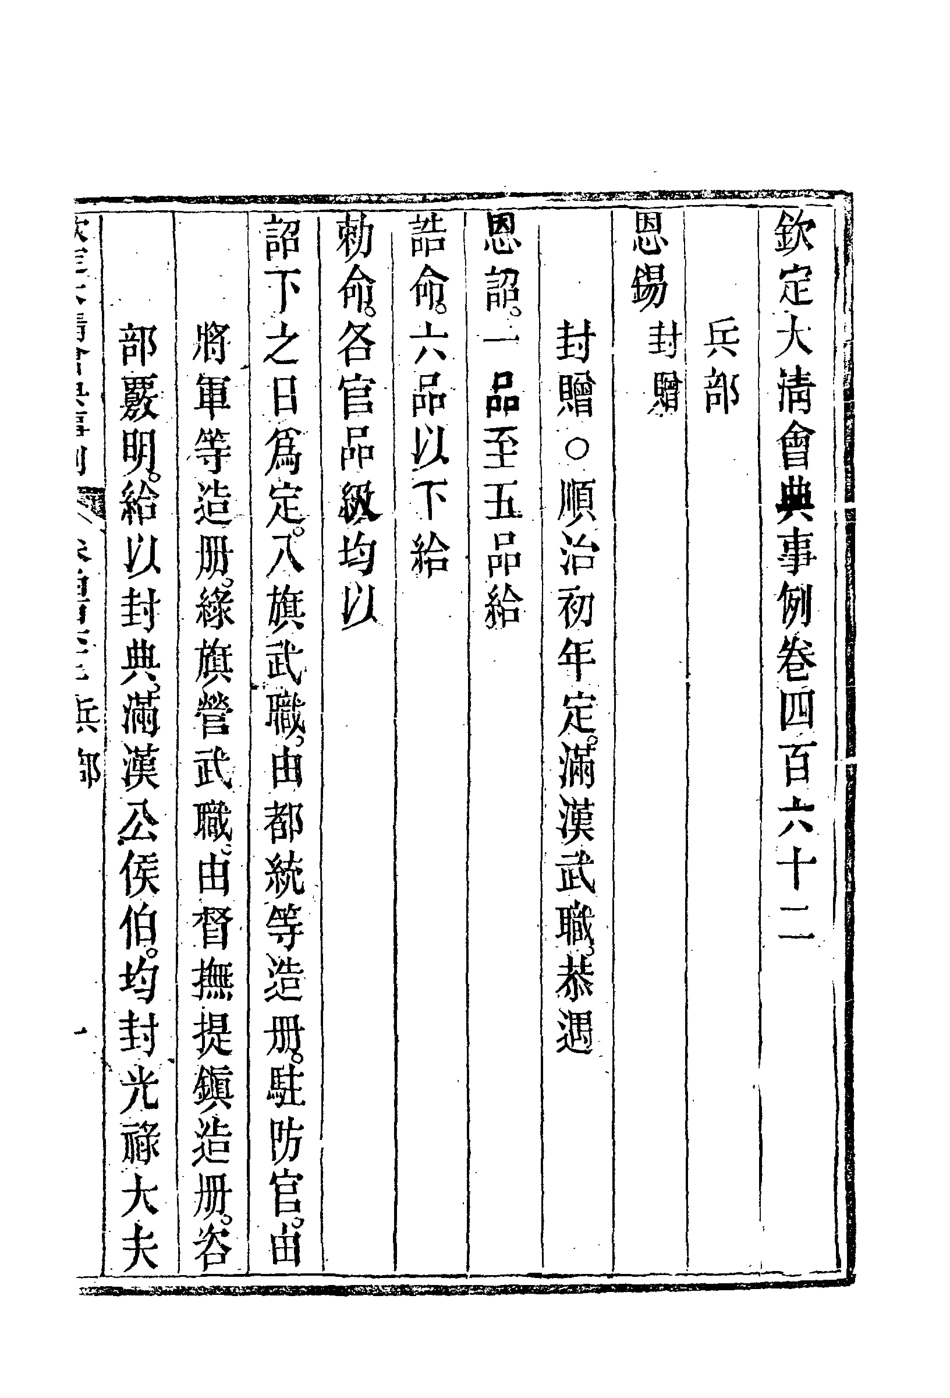 欽定大清會典事例卷四百六十二
兵部
恩錫 封贈
封贈○順治初年定。滿漢武職。恭遇
恩詔。一品至五品給
誥命。六品以下給
勅命。各官品級均以
詔下之日爲定。八旗武職。由都統等造册。駐防官。由
將軍等造册。綠旗營武職。由督撫提鎭造册。咨
部覈明。給以封典。滿漢公侯伯。均封光祿大夫
兵部
一